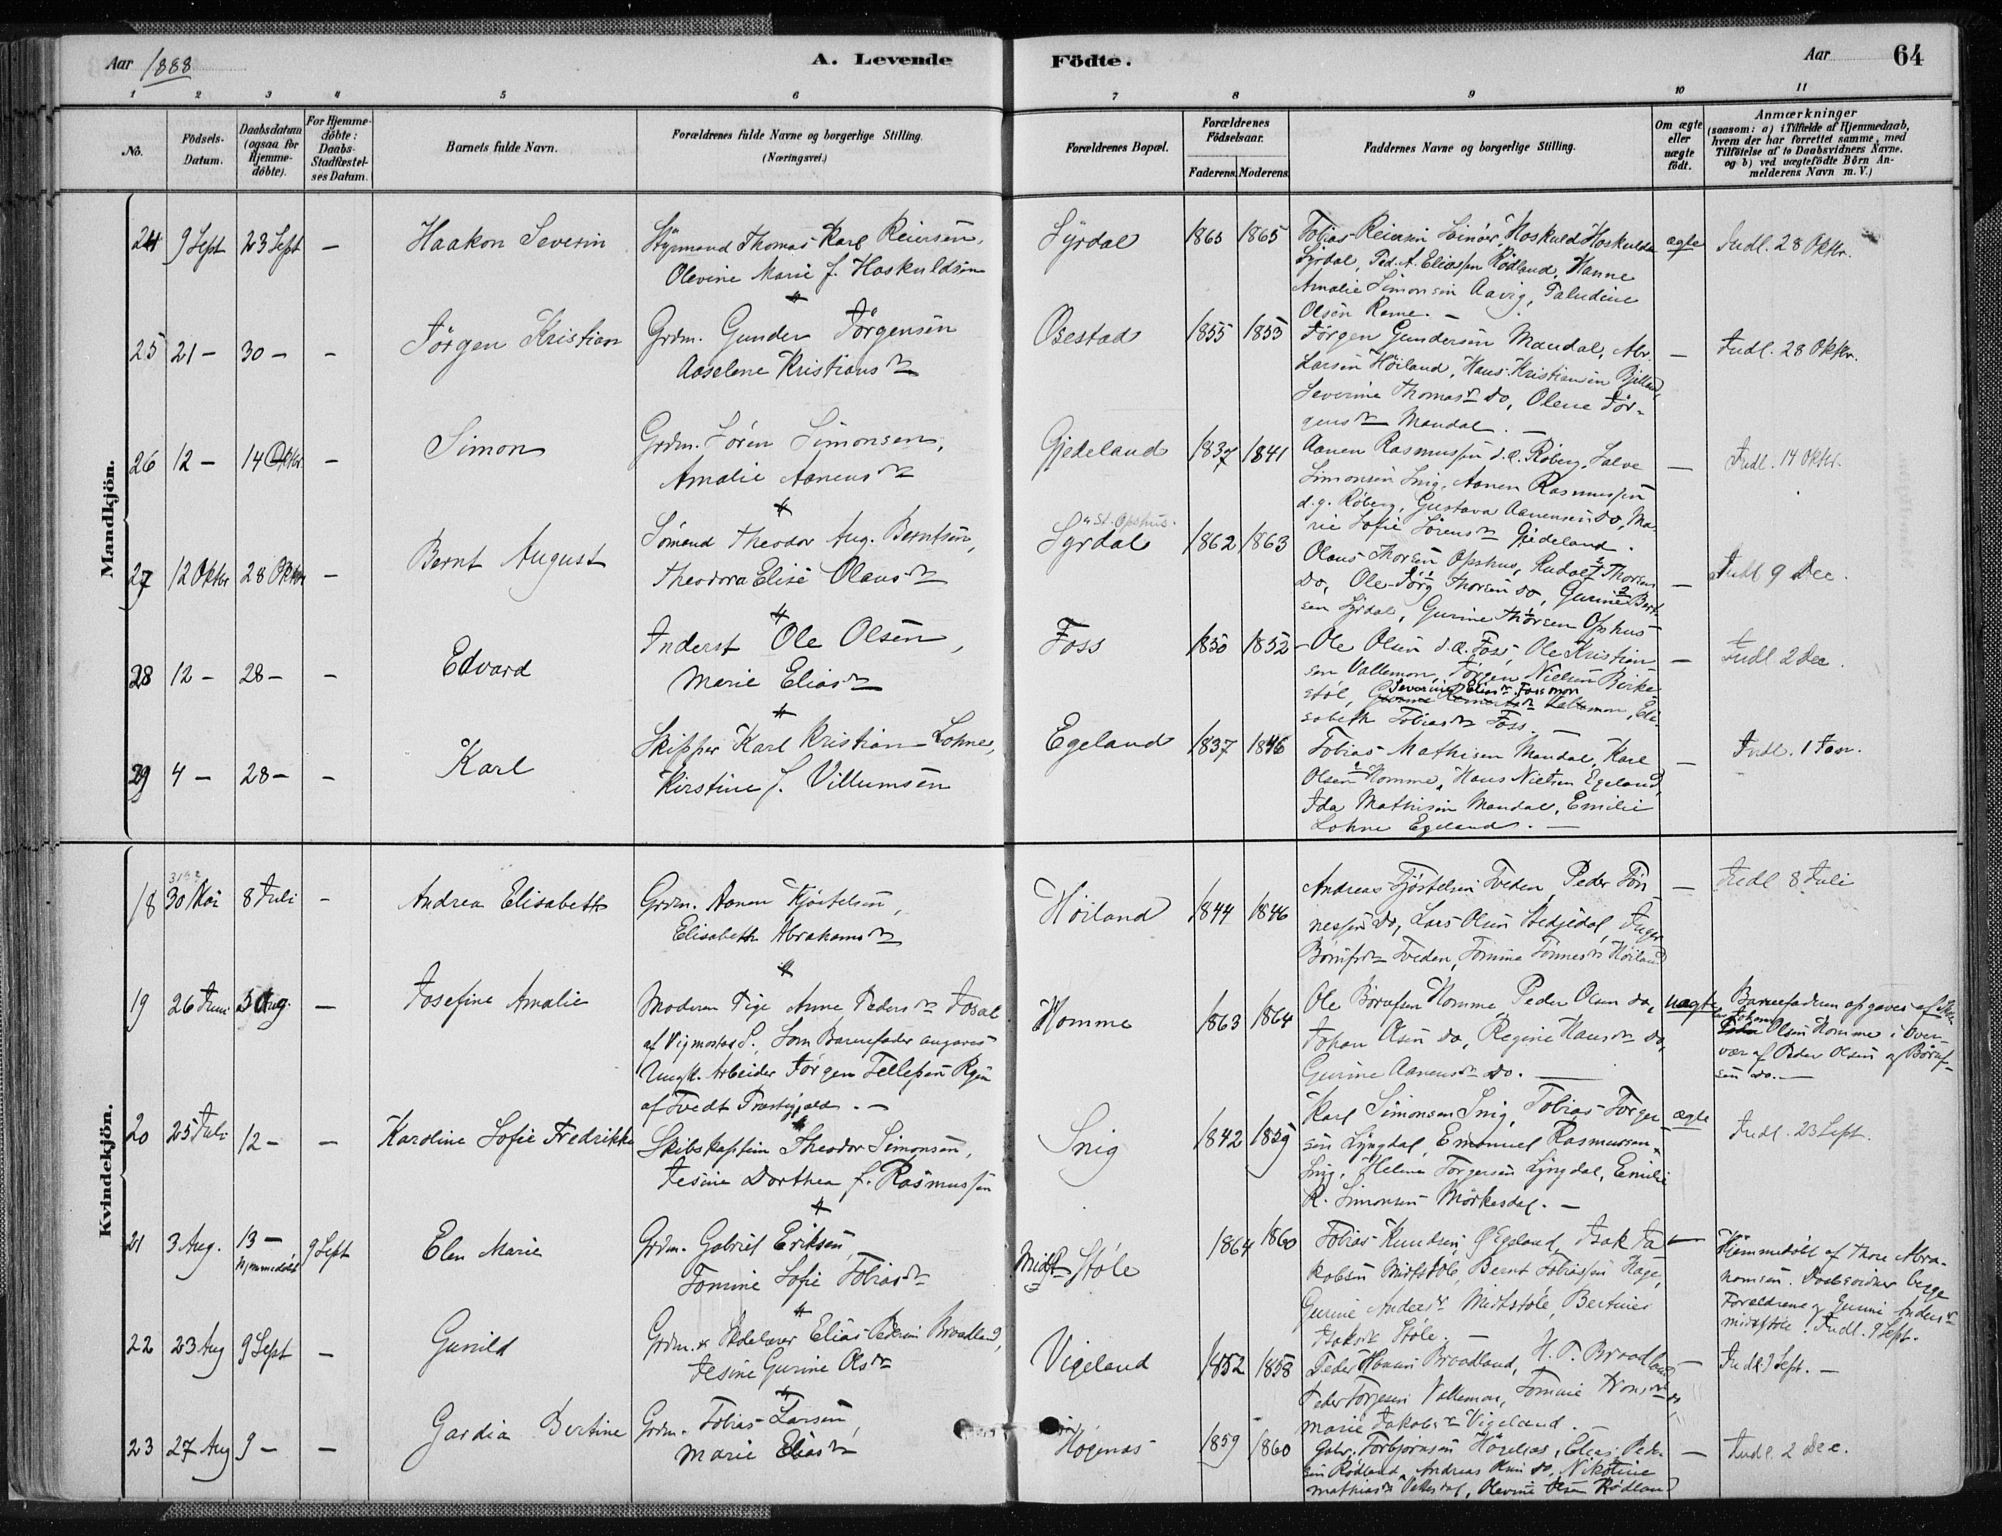 Aar 1888
A. Levende
Födte.
Aar
64
1 2 3 4 5 6 7 8 9 10 11
No.
Födsels-Datum.
Daabsdatum (ogsaa for Hjemme-döbte).
For Hjemme-döbte: Daabs-Stadfæstel-ses Datum.
Barnets fulde Navn.
Forældrenes fulde Navne og borgerlige Stilling.
(Næringsvei.)
Forældrenes Bopæl.
Forældrenes Födselsaar.
Faderens. Moderens.
Faddernes Navne og borgerlige Stilling.
Om ægte eller uægte födt.
Anmærkninger
(saasom: a) i Tilfælde af Hjemmedaab,
hvem der har forrettet samme, med
Tilföielse af to Daabsvidners Navne.
og b) ved uægtefödte Börn An-
melderens Navn m. V.)
Mandkjön.
24 9 Sept 23 Sept – Haakon Severin
Styrmand Thomas Karl Reiersen,
Olevine Marie f. Hoskuldsen
Syrdal 1865 1865
Tobias Reiersen Hoskuld Hoskulds
Syrdal, Ped. A. Eliassen Rödland, Hanne
Amalie Simonsen Aavig, Paludine
Olsen Rame. –
ægte Indl. 28 Oktbr.
25 21 – 30 – – Jörgen Kristian
Grdm. Gunder Jörgensen
Aaselene Kristiansdr
Osestad 1855 1853
Jörgen Gundersen Mandal, Abr.
Larsen Höiland, Hans Kristiansen Bjelland,
Severine Thomasdr do, Olene Jör-
gensdr Mandal. –
– Indl. 28 Oktbr.
26 12 – 14 Oktbr – Simon
Grdm. Sören Simonsen,
Amalie Aanensdr
Gjedeland 1837 1841
Aanen Rasmussen d.e. Röberg, Salve
Simonsen Snig, Aanen Rasmussen
d.y. Röberg, Gustava Aanensen do, Ma-
rie Sofie Sörensdr Gjedeland.
– Indl. 14 Oktbr.
27 12 Oktbr 28 Oktbr – Bernt August
Sömand Theodor Aug. Berntsen,
Theodora Elise Olausdr
St. Opshus.
Syrdal 1862 1863
Olaus Thorsen Opshus, Rudolf Thorsen
do, Ole Jörg Thorsen do, Gurine Bernt-
sen Syrdal, Gurine Thorsen Opshus
– Indl 9 Dec.
28 12 – 28 – – Edvard
Inderst Ole Olsen,
Marie Eliasdr
Foss 1850 1852
Ole Olsen d.e. Foss, Ole Kristian-
sen Vallemon, Jörgen Nielsen Birke-
Severine Eliasdr Fossmon
stöl, Vallemon, Eli-
sabeth Tobiasdr Foss
– Indl 2 Dec.
29 4 – 28 – – Karl
Skipper Karl Kristian Lohne,
Kirstine f. Villumsen
Egeland 1837 1846
Tobias Mathisen Mandal, Karl
Olsen Homme, Hans Nielsen Egeland,
Ida Mathisen Mandal, Emilie
Lohne Egeland. –
– Indl. 1 Jan.
Kvindekjön.
18 30 Mai 8 Juli – Andrea Elisabeth
Grdm. Aanen Kjöstelsen,
Elisabeth Abrahamsdr
Höiland 1844 1846
Andreas Kjöstelsen Tveden, Peder Tön-
nessen do, Lars Olsen Stedjedal, Inger
Börufsdr Tveden, Tomine Tönnesdr Höiland
– Indl 8 Juli
19 26 Juni 5 Aug. – Josefine Amalie
Moderen Pige Anne Pedersdr Fosal
af Vigmostad S. Som Barnefader angaves
Ungk. Arbeider Jörgen Tellefsen Rygn
af Tvedt Præstegjeld. –
Homme 1863 1864
Ole Börufsen Homme, Peder Olsen do,
Johan Olsen do, Regine Hansdr do,
Gurine Aanensdr do. –
uægte
Barnefaderen opgaves af
Johan Olsen Homme i Over-
vær af Peder Olsen og Böruf-
sen do. –
20 25 Juli 12 – – Karoline Sofie Fredrikke
Skibskaptein Theodor Simonsen,
Jesine Dorthea f. Rasmussen
Snig 1842 1859
Karl Simonsen Snig, Tobias Torger-
sen Lyngdal, Emanuel Rasmussen
Snig, Helene Torgersen Lyngdal, Emilie
R. Simonsen Mörkesdal. –
ægte Indl. 23 Sept.
21 3 Aug. 13 – hjemmedöbt 9 Sept Elen Marie
Grdm. Gabriel Eriksen,
Tomine Sofie Tobiasdr
Midt Stöle 1864 1860
Tobias Knudsen Ö Egeland, Isak Ja-
kobsen Midtstöle, Bernt Tobiassen Hage,
Gurine Andersdr Midtstöle, Bertine
Isaksdr Stöle. –
–
Hjemmedöbt af Thore Abra-
hamsen. Daabsvidner begge
Forældrene og Gurine Andersdr
Midtstöle. Indl. 9 Sept.
22 23 Aug 9 Sept – Gunild
Grdm. & Skolelærer Elias Pedersen Broadland,
Jesine Gurine Olsdr
Vigeland 1852 1858
Peder Hansen Broadland, H. P. Broadland
Peder Torjesen Vallemon, Tomine
Marie Jakobsdr Vigeland. –
– Indl 9 Sept. –
23 27 Aug 9 – – Gardia Bertine
Grdm. Tobias Larsen,
Marie Eliasdr
Högenæs 1859 1860
Gabr. Torbjörnsen Högenæs, Elias Peder-
sen Rödland, Andreas Olsen do, Nikoline
Mathiasdr, Olevine Olsen Rödland
– Indl. 2 Dec.